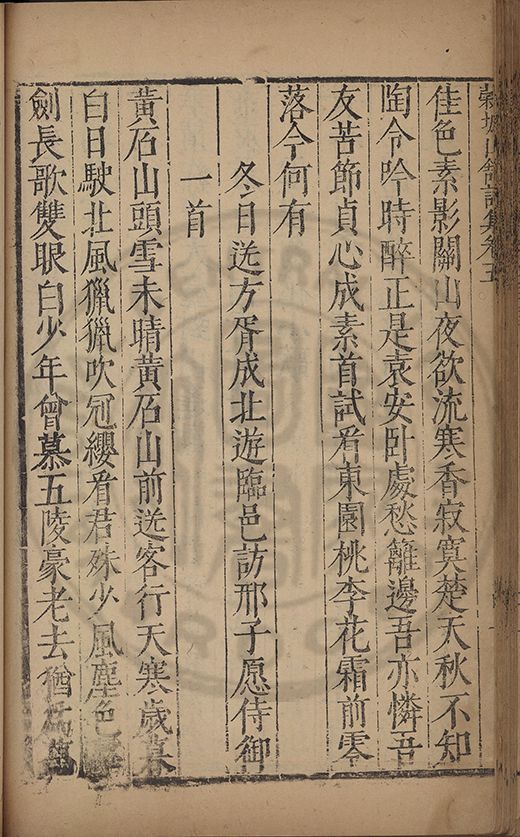 穀城山館詩集卷五
佳色素影關山夜欲流寒香寂寞楚天秋不知
陶令吟時醉正是袁安臥處愁籬邊吾亦憐吾
友苦節貞心成素首試看東園桃李花霜前零
落今何有
冬日送方胥成北遊臨邑訪邢子愿侍御
一首
黃石山頭雪未晴黃石山前送客行天寒歲暮
白日駛北風獵獵吹冠纓看君殊少風塵色
劍長歌雙眼白少年曾慕五陵豪老去猶爲